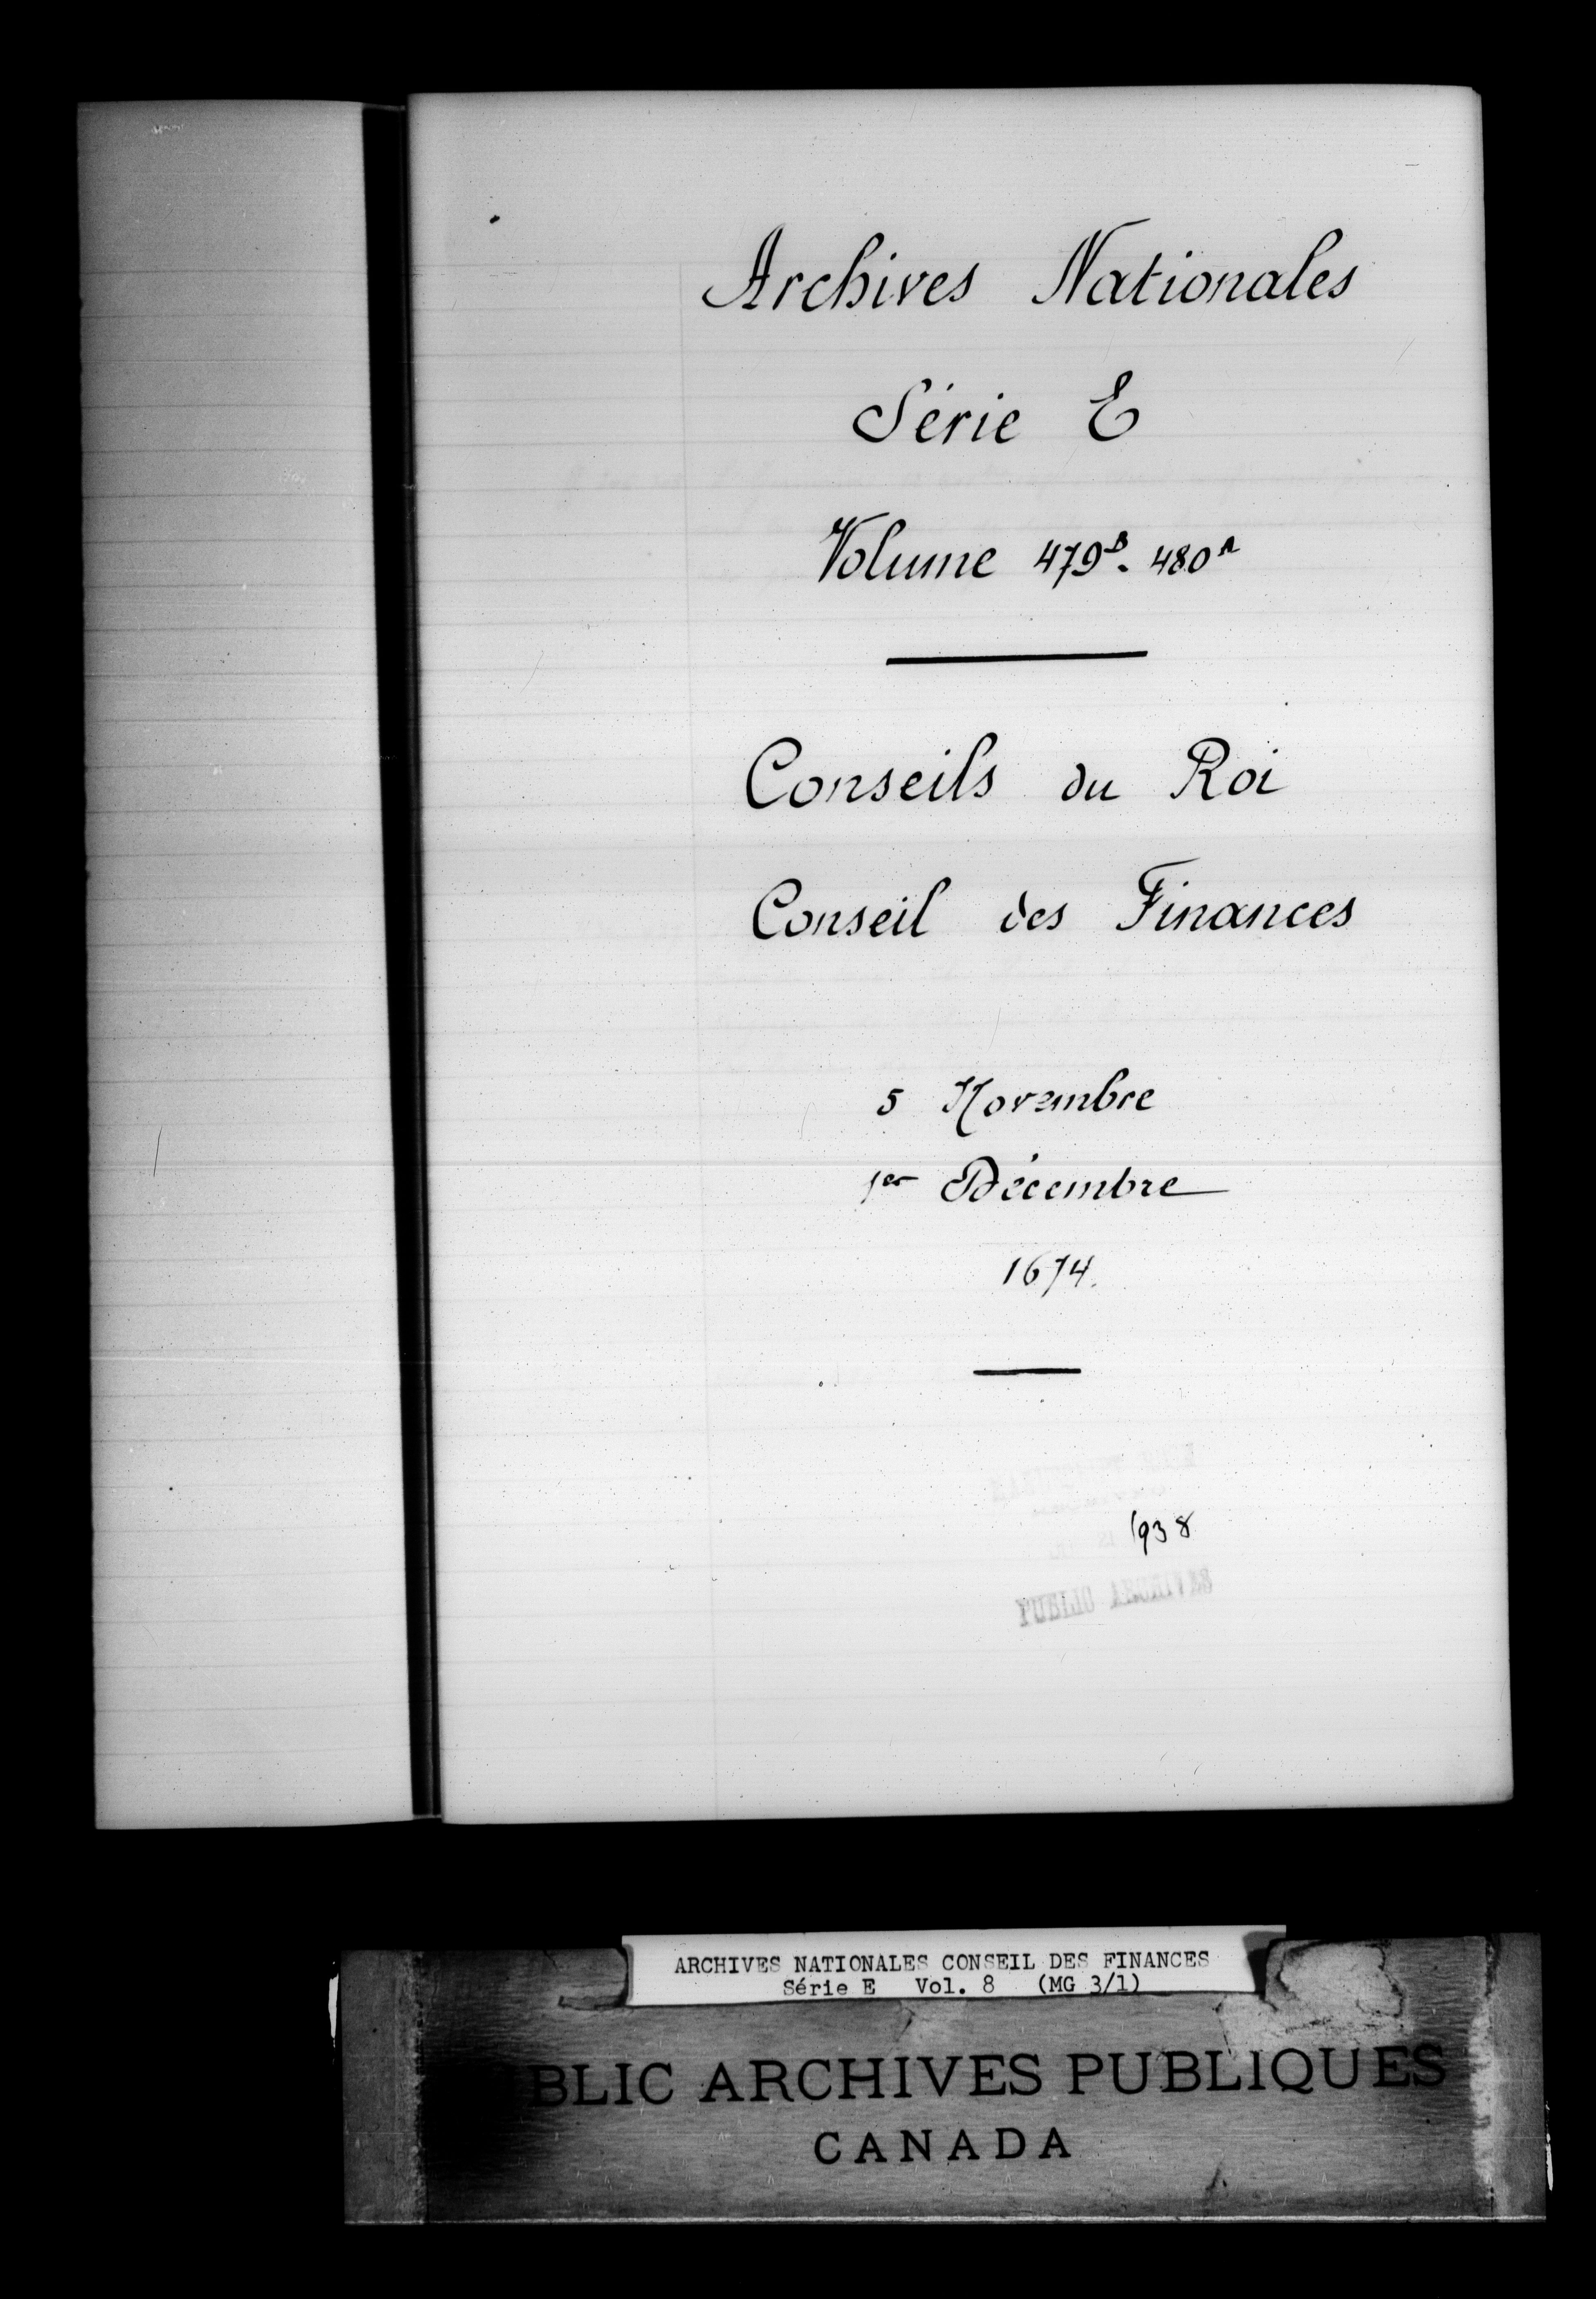 Archives Nationales
Série E
Volume 479ᴮ. 480ᴬ
Conseils du Roi
Conseil des Finances
5 Novembre
1er Décembre
1674.
1938
PUBLIC ARCHIVES
ARCHIVES NATIONALES CONSEIL DES FINANCES
Série E Vol. 8 (MG 3/1)
BLIC ARCHIVES PUBLIQUES
CANADA